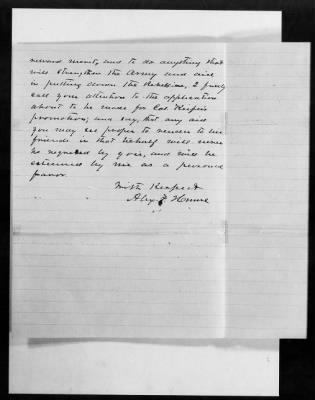 reward merit, and to do anything that
will strengthen the Army and aid
in putting down the Rebellion, I freely
call your attention to the application
about to be made for Col Keifer's
promotion; and say, that any aid
you may see proper to render to his
friends in that behalf will never
be regretted by you, and will be
esteemed by me as a personal
favor.
With Respect
Alex F Hume